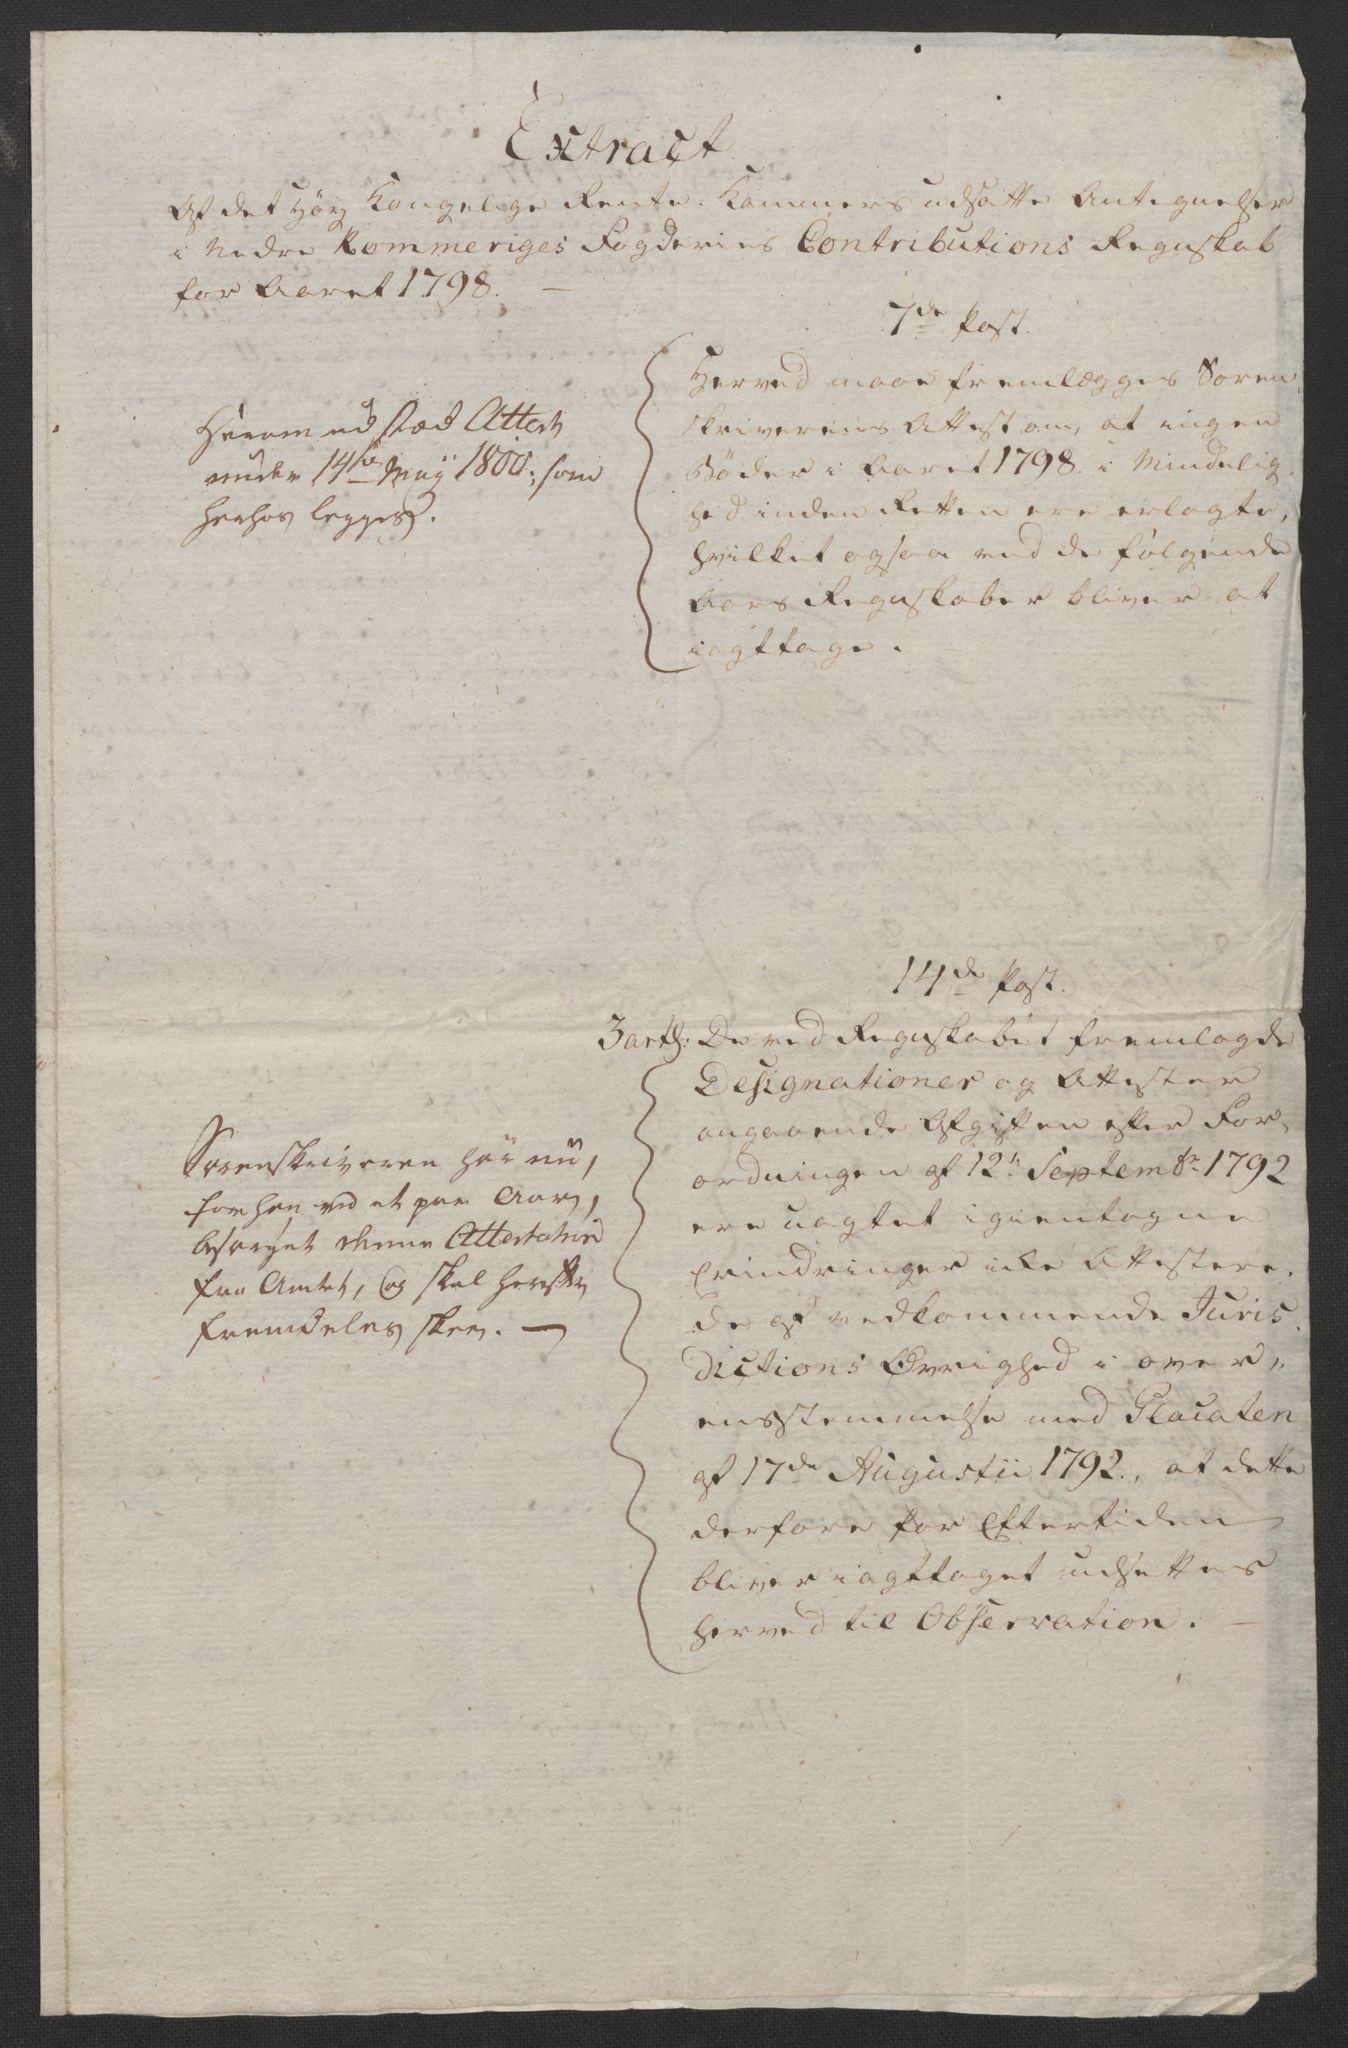 Extract
Af det Høy Kongelige Rente-Kammers udsatte Antegnelser
i Nedre Rommeriges Fogderies Contributions Regnskab
for Aaret 1798. —
7de Post.
Herved maae fremlægges Soren
skriverens Attest om, at ingen
Bøder i Aaret 1798. i Mindelig-
hed inden Retten ere erlagte,
hvilket ogsaa ved de følgende
Aars Regnskaber bliver at
iagttage. —
Herom udstæd Attest
under 14de Maÿ 1800, som
herhos legges.
14de Post.
3die De ved Regnskabet fremlagde
Designationer og Attester
angaaende Afgiften efter For-
ordningen af 12te Septembr 1792
ere uagtet igientagne
Erindringer icke Attestere-
de af vedkommende Juris-
dictions Øvrighed i over-
ensstemmelse med Placaten
af 17de Augustii 1792., at dette
derfore for Eftertiden
bliver iagttaget udsættes
herved til Observation. —
Sorenskriveren har nu,
som han ved et par Aar,
besørget denne Attestation
fra Amtet, og skal herefter
fremdeles skee. —